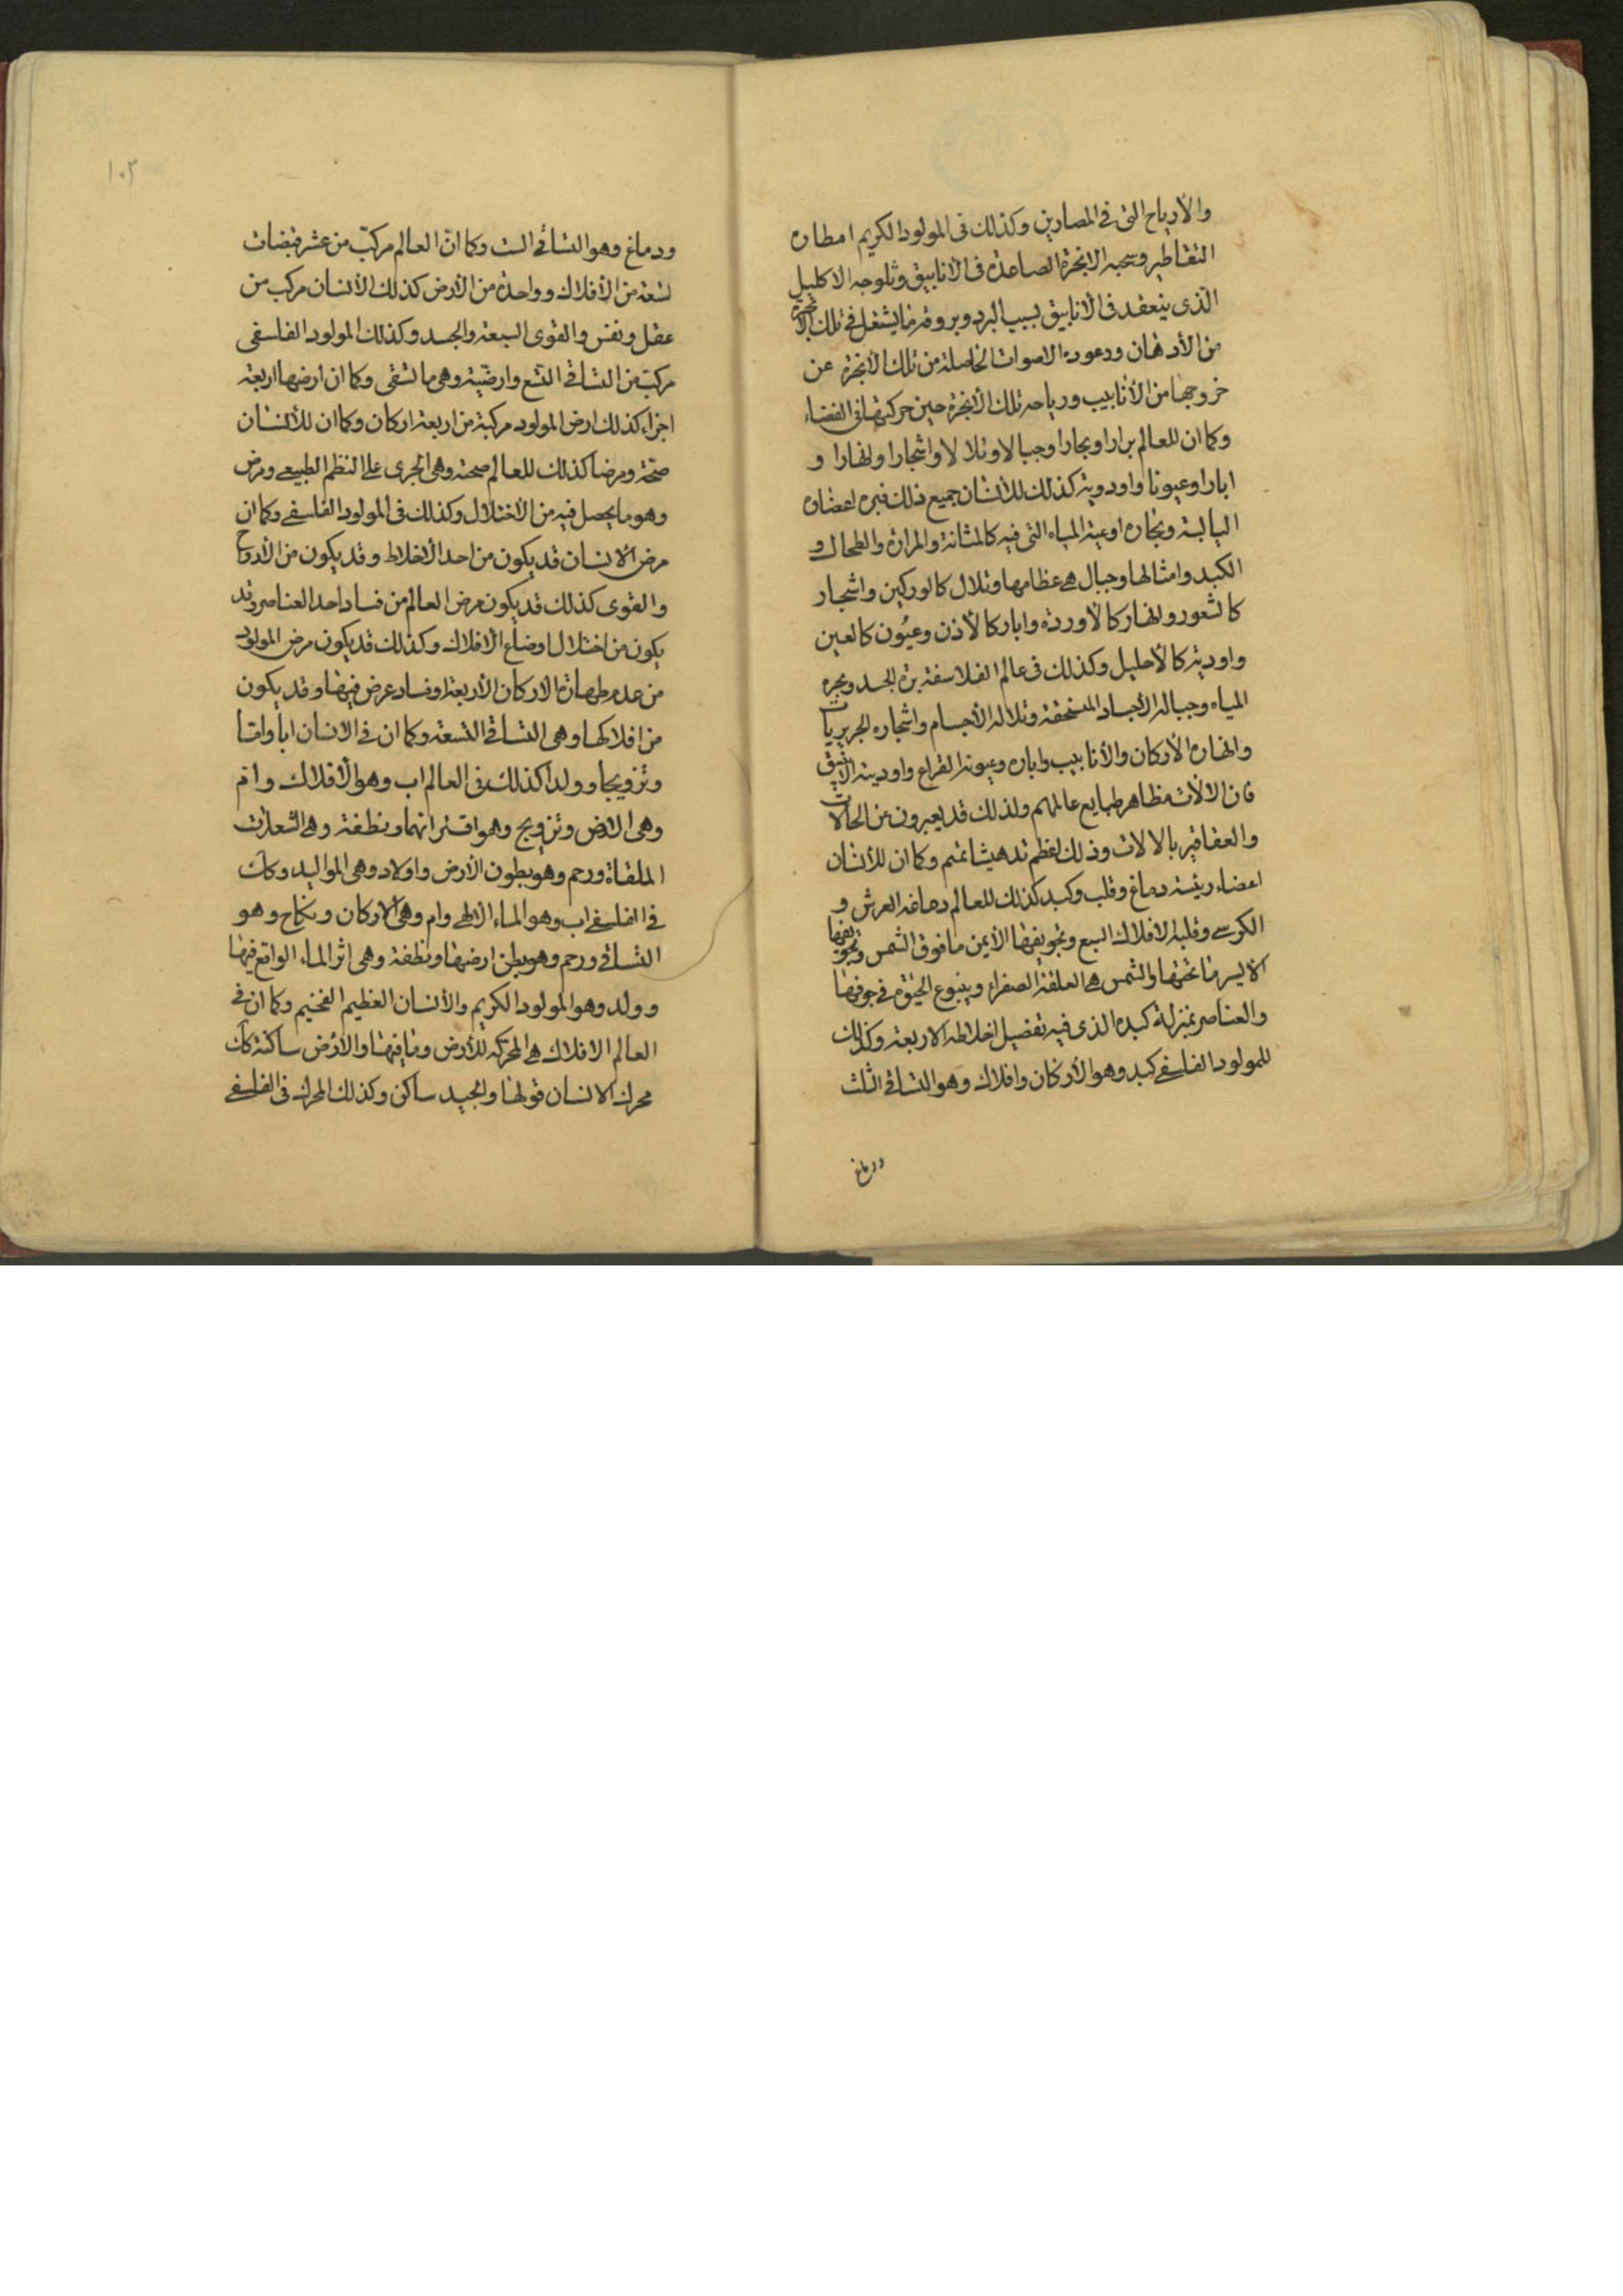 والأرياح التي في المصارين وكذلك في المولود الكريم امطاره
التقاطير وسحبه الابخرة الصاعدة في الأنابيق وثلوجه الاكليل
الذي ينعقد في الأنابيق بسبب البرد وبروقه ما يشتعل في تلك الأبخرة
من الأدهان ورعوده الاصوات الحاصلة من تلك الأبخرة عن
خروجها من الأنابيب ورياحه تلك الأبخرة حين حركتها في الفضاء
وكما ان للعالم برارا وبحارا وجبالا وتلالا واشجارا وانهارا و
ابارا وعيونا واودوية كذلك للأنسان جميع ذلك فبره اعضاؤه
اليابسة وبحاره اوعية المياه التي فيه كالمثانة والمرارة والطحال و
الكبد وامثالها وجبال هي عظامها وتلال كالوركين واشجار
كالشعور وانهار كالأوردة وابار كالأذن وعيُون كالعين
واودية كالأحليل وكذلك في عالم الفلاسفة بره الجسد وبحره
المياه وجباله الأجساد المنسحقة وتلاله الأجسام واشجاره الجريريات
وانهاره الأركان والأنابيب وابارہ وعيونه القراع واوديته الانبيق
فان الالات مظاهر طبايع عالمهم ولذلك قد يعبرون عن الحالات
والعقاقير بالالات وذلك لعظم تدهيشاتهم وكما ان للأنسان
اعضاء رئيسة دماغ وقلب وكبد كذلك للعالم دماغه العرش و
الكرسي وقلبه الافلاك السبع وتجويفها الأيمن ما فوق الشمس وتجويفها
الأيسر ما تحتها والشمس هي العلقة الصفراء وينبوع الحيوة في جوفها
والعناصر بمنزلة كبده الذي فيه تفصيل اخلاطه الاربعة وكذلك
للمولود الفلسفي كبد وهو الأركان وافلاك وهو التساقي الثلث
ودماغ
١٠٣
ودماغ وهو التساقي الست وكما انّ العالم مركبّ من عشر قبضات
تسعة من الأفلاك وواحدة من الأرض كذلك الأنسان مركب من
عقل ونفس والقوى السبعة والجسد وكذلك المولود الفلسفي
مركبّ من التساقي التسع وارضيّة وهي ما تسقى وكما ان ارضها اربعة
اجزاء كذلك ارض المولود مركبة من اربعة اركان وكما ان للأنسان
صحّة ومرضا كذلك للعالم صحة وهي الجرى على النظم الطبيعي ومرض
وهو ما يحصل فيه من الأختلال وكذلك في المولود الفلسفي وكما ان
مرض الانسان قد يكون من احد الأخلاط وقد يكون من الأرواح
والقوى كذلك قد يكون مرض العالم من فساد احد العناصر وقد
يكون من اختلال اوضاع الأفلاك وكذلك قد يكون مرض المولود
من عدم طهارة الاركان الأربعة او فساد عرض فيها وقد يكون
من افلاكها وهي التساقي التسعة وكما ان في الانسان ابا واما
وتزويجا وولدا كذلك في العالم اب وهو الأفلاك وام
وهي الارض وتزويج وهو اقترانهما ونطفة وهي الشعلات
الملقاة ورحم وهو بطون الأرض واولاد وهي المواليد وكذلك
في الفلسفي اب وهو الماء الالهي وام وهي الاركان ونكاح وهو
التساقي ورحم وهو بطن ارضها ونطفة وهي اثر الماء الواقع فيها
وولد وهو المولود الكريم والأنسان العظيم الفخيم وكما ان في
العالم الافلاك هي المحركة للأرض وما فيها والأرض ساكنة كذلك
محرك الانسان قولها والجسد ساكن وكذلك المحرك في الفلسفي